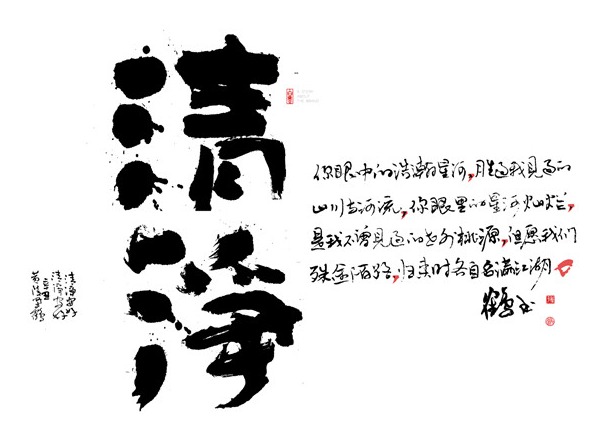 清
净
你眼中的浩瀚星河,胜过我见过的
山川与河流,你眼里的星河灿烂,
是我不曾见过的世外桃源,但愿我们
殊途陌路,归来时各自名满江湖。
鹤书